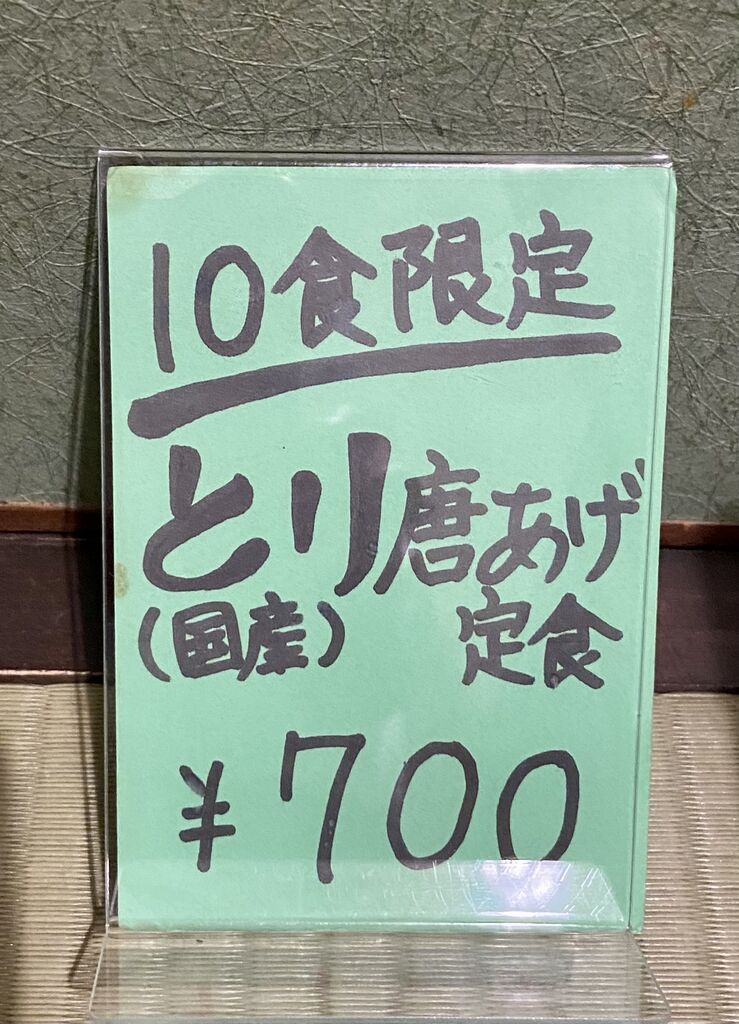 10食限定
とり唐あげ
(国産) 定食
¥700